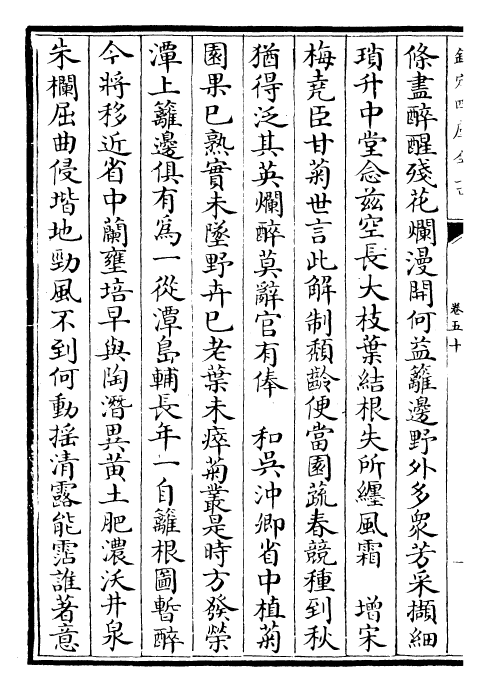 欽定四庫全書
卷五十
條盡醉醒殘花爛漫開何益籬邊野外多衆芳采擷細
瑣升中堂念兹空長大枝葉結根失所纏風霜　增宋
梅堯臣甘菊世言此解制頽齡便當園蔬春競種到秋
猶得泛其英爛醉莫辭官有俸　和吳沖卿省中植菊
園果已熟實未墜野卉已老葉未瘁菊叢是時方發榮
潭上籬邊俱有為一從潭島輔長年一自籬根圖暫醉
今將移近省中蘭壅培早與陶潛異黄土肥濃沃井泉
朱欄屈曲侵堦地勁風不到何動摇清露能霑誰著意